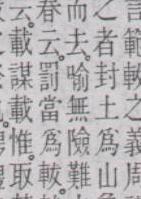 言範軷之義周
之者封土爲山
而去。喻無險難
春云。罰當爲軷。
云。載謀載惟。取